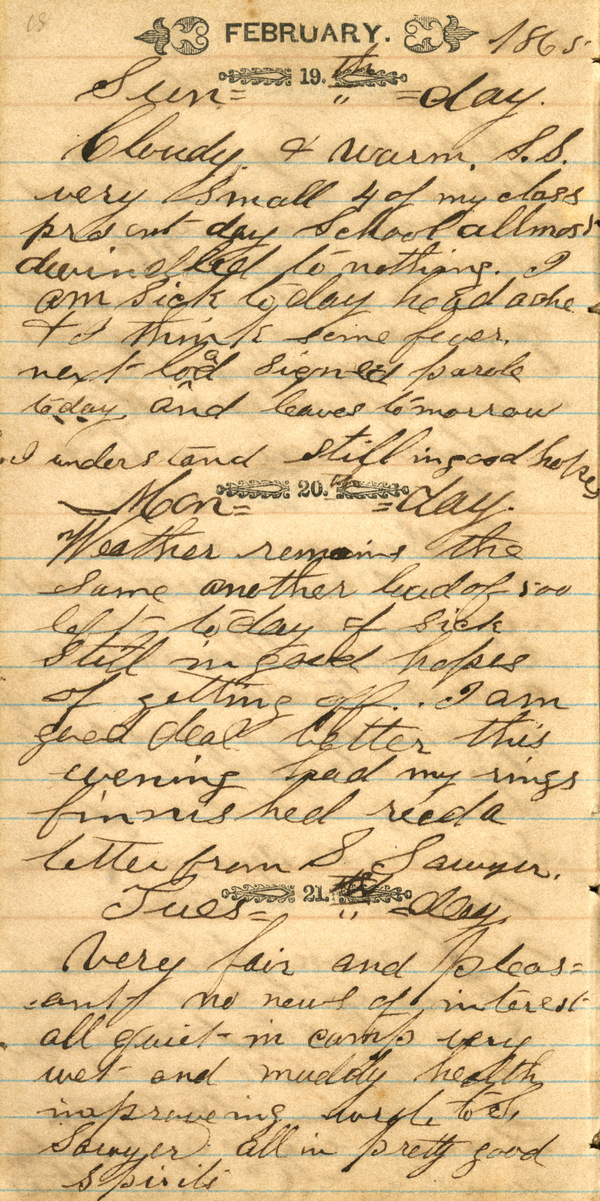 18
FEBRUARY. 1865
19.th
Sun= " =day.
Cloudy & warm. S.S.
very small 4 of my class
present day School allmost
dwindled to nothing. I
am sick today headache
& I think some fever.
next load signed parole
today and leaves tomorrow
I understand still in good hopes
20.th
Mon= =day.
Weather remains the
same another lud of 500
left today of sick
still in good hopes
of getting off. I am
good deal better this
evening had my rings
finnished recd a
letter from S. Sawyer.
21.th
Tues= " =day.
Very fair and pleas=
ant no news of interest
all quiet in camp very
wet and muddy health
improveing wrote to S.
Sawyer all in pretty good
spirits